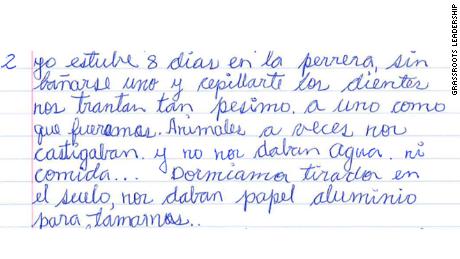 2 yo estube 8 dias en la perrera, sin
bañarse uno y cepillarte los dientes
nos trantan tan pesimo. a uno como
que fueramos. Animales a veces nos
castigaban. y no nos daban agua. ni
comida... Dormiamos tirados en
el suelo, nos daban papel aluminio
para, tamarnos..
GRASSROOTS LEADERSHIP